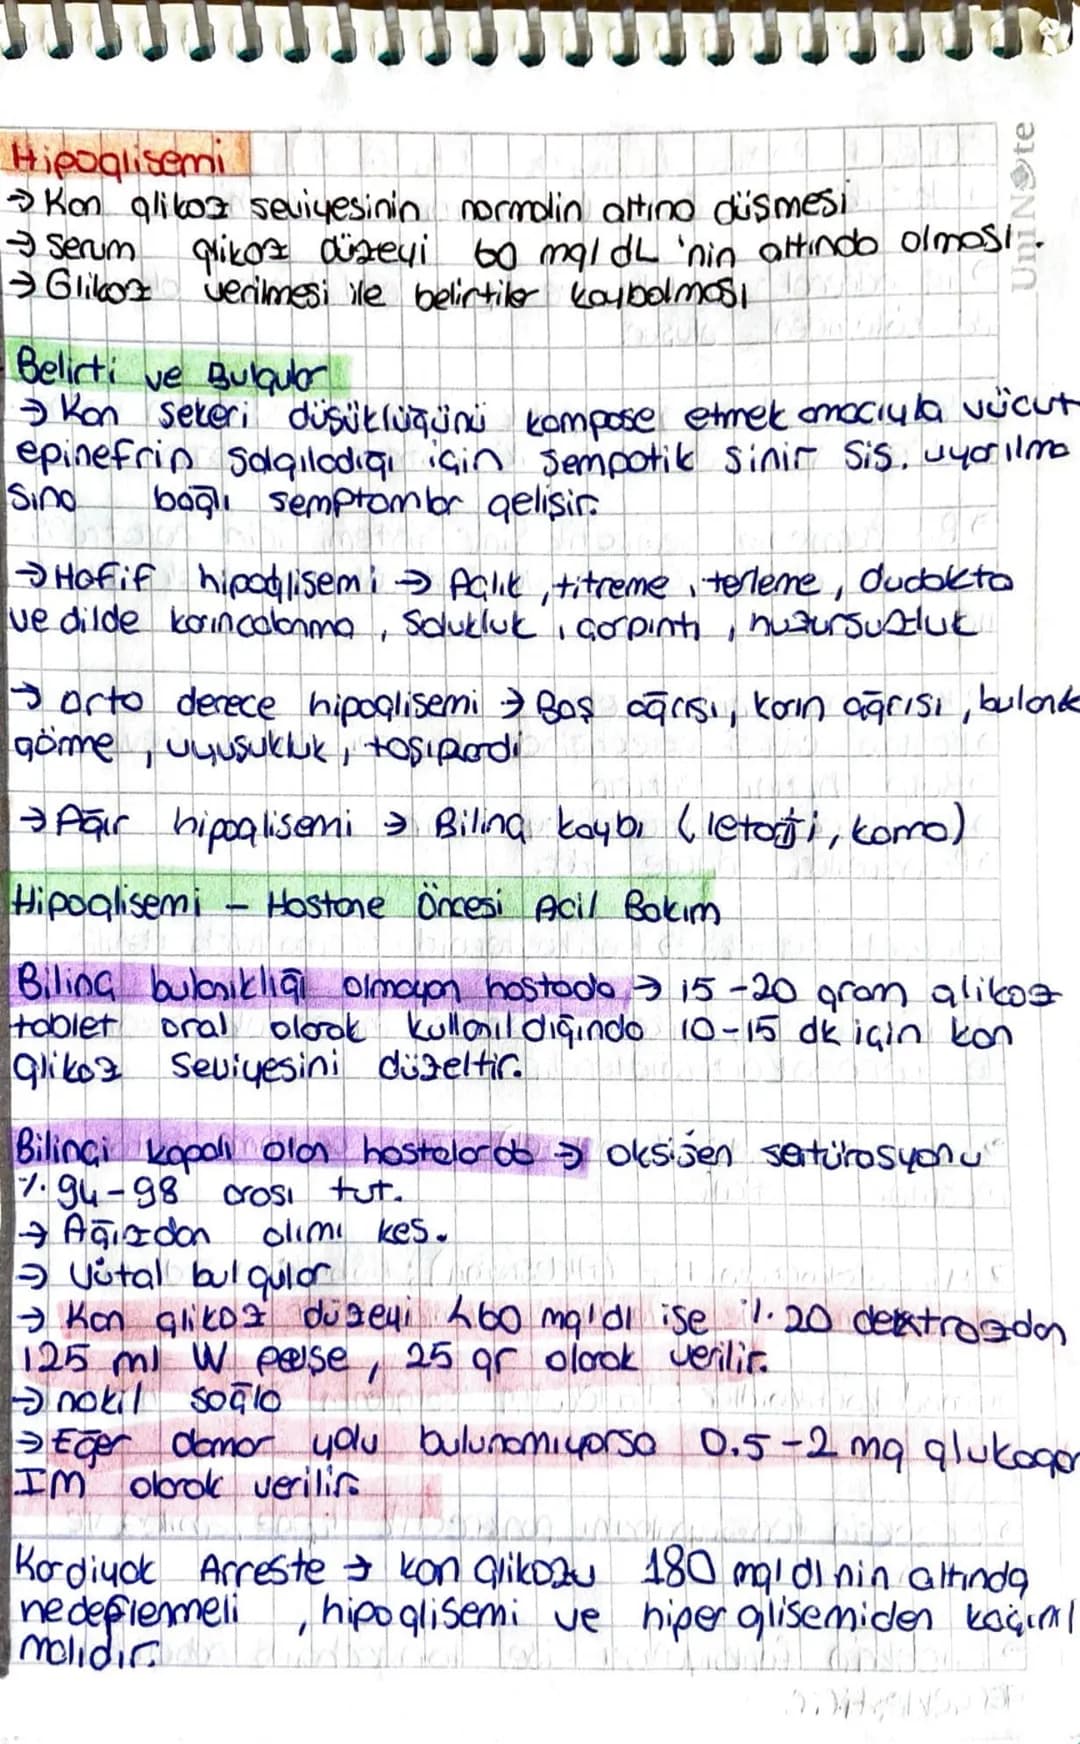 UniNote
Hipoglisemi
→ Kan glikoz seviyesinin normalin altına düşmesi
→ Serum glikoz düzeyi 60 mg/dL 'nin altında olması.
→ Glikoz verilmesi ile belirtiler kaybolması
Belirti ve Bulgular
→ Kan şekeri düşüklüğünü kompose etmek amacıyla vücut
epinefrin salgıladığı için sempatik sinir sis. uyarılma
sına bağlı semptomlar gelişir.
→ Hafif hipoglisemi → Açlık, titreme, terleme, dudakta
ve dilde karıncalanma, Solukluk, çarpıntı, huzursuzluk
→ orta derece hipoglisemi → Baş ağrısı, karın ağrısı, bulanık
görme, uyuşukluk, taşipardi
→ Ağır hipoglisemi → Bilinç kaybı (letarji, koma)
Hipoglisemi - Hastane Öncesi Acil Bakım
Bilinç bulanıklığı olmayan hastada → 15-20 gram glikoz
tablet oral olarak kullanıldığında 10-15 dk için kan
glikoz Seviyesini düzeltir.
Bilinci kapalı olan hastalarda → oksijen satürasyonu
%94-98 arası tut.
→ Ağızdan alımı kes.
→ Vital bulgular
→ Kan glikoz düzeyi <60 mg/dl ise %20 dextrozdan
125 ml IV perse, 25 gr olarak verilir.
→ nakil sağla
→ Eğer damar yolu bulunamıyorsa 0.5-2 mg glukagon
IM olarak verilir.
Kardiyak Arreste → kan glikozu 180 mg/dl nin altında
hedeflenmeli, hipoglisemi ve hiperglisemiden kaçınıl
malıdır.